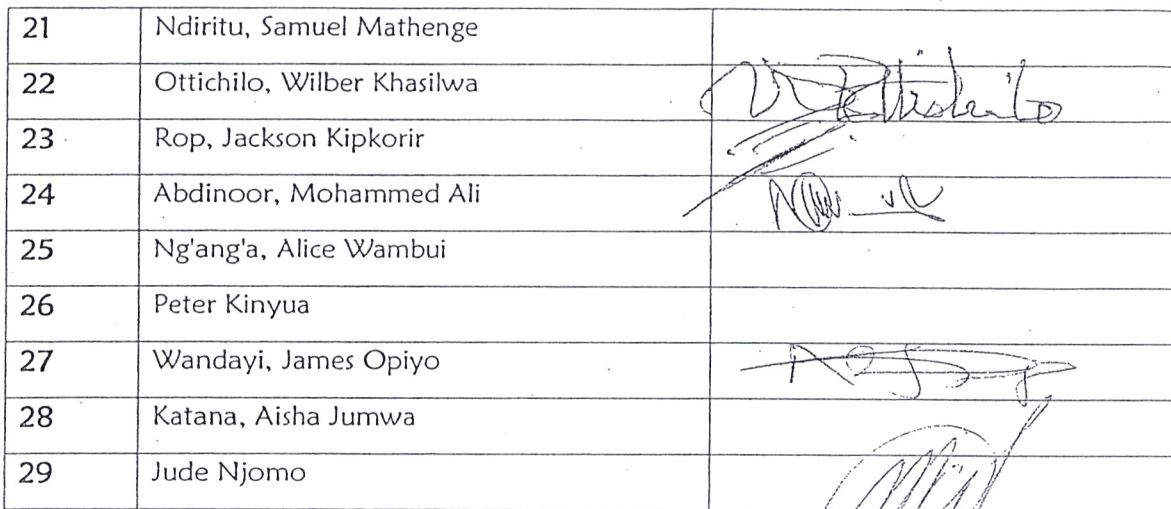 21 Ndiritu, Samuel Mathenge
22 Ottichilo, Wilber Khasilwa
23 Rop, Jackson Kipkorir
24 Abdinoor, Mohammed Ali
25 Ng'ang'a, Alice Wambui
26 Peter Kinyua
27 Wandayi, James Opiyo
28 Katana, Aisha Jumwa
29 Jude Njomo